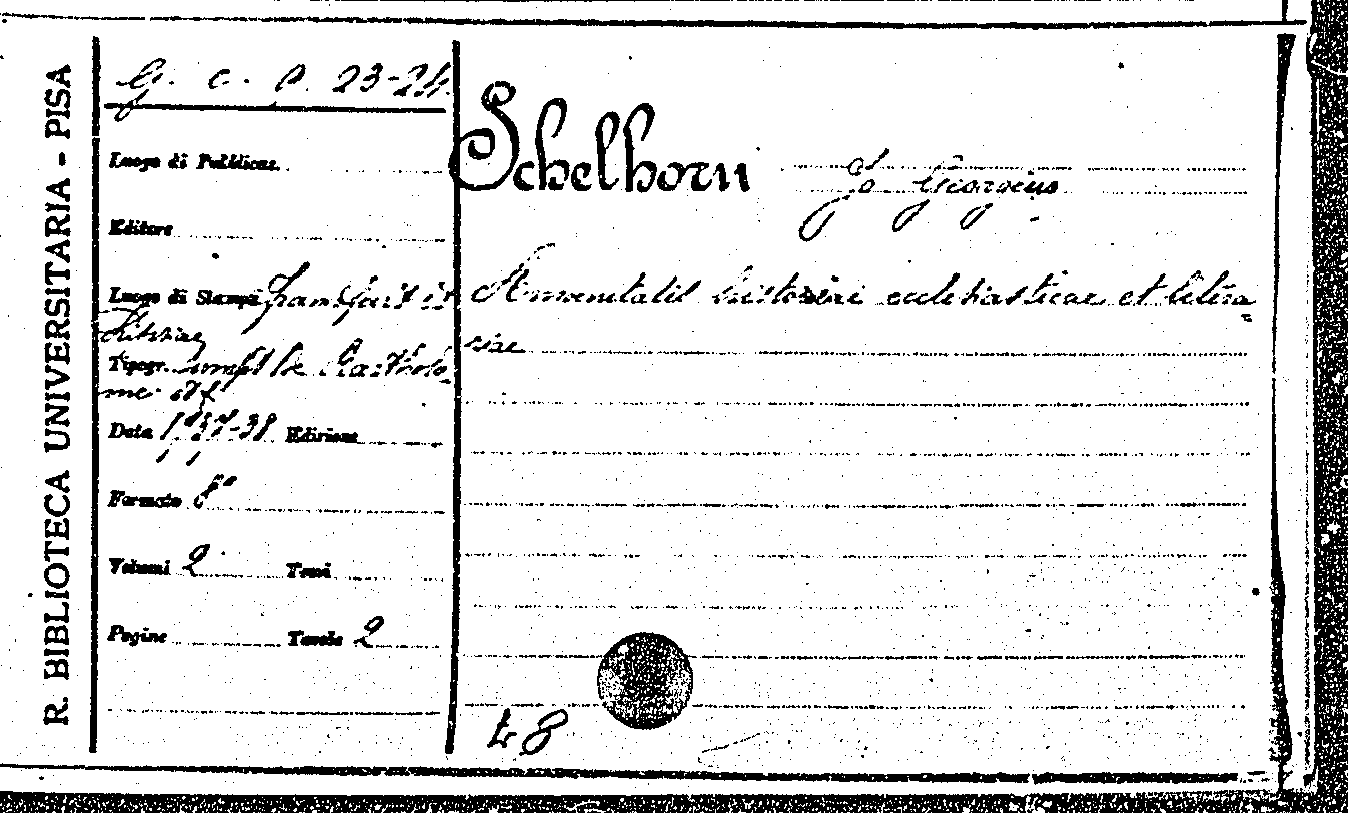 R. BIBLIOTECA UNIVERSITARIA - PISA
G. c. p. 23-24.
Luogo di Pubblicaz.
Editore
Luogo di Stampa
Tipogr.
Data 1737-38 Edizione
Formato 8°
Volumi 2 Tomi
Pagine Tavole 2
Schelhorn Jo Georgeius
Amoenitatis historiai ecclesiasticae et litera=
riae
48